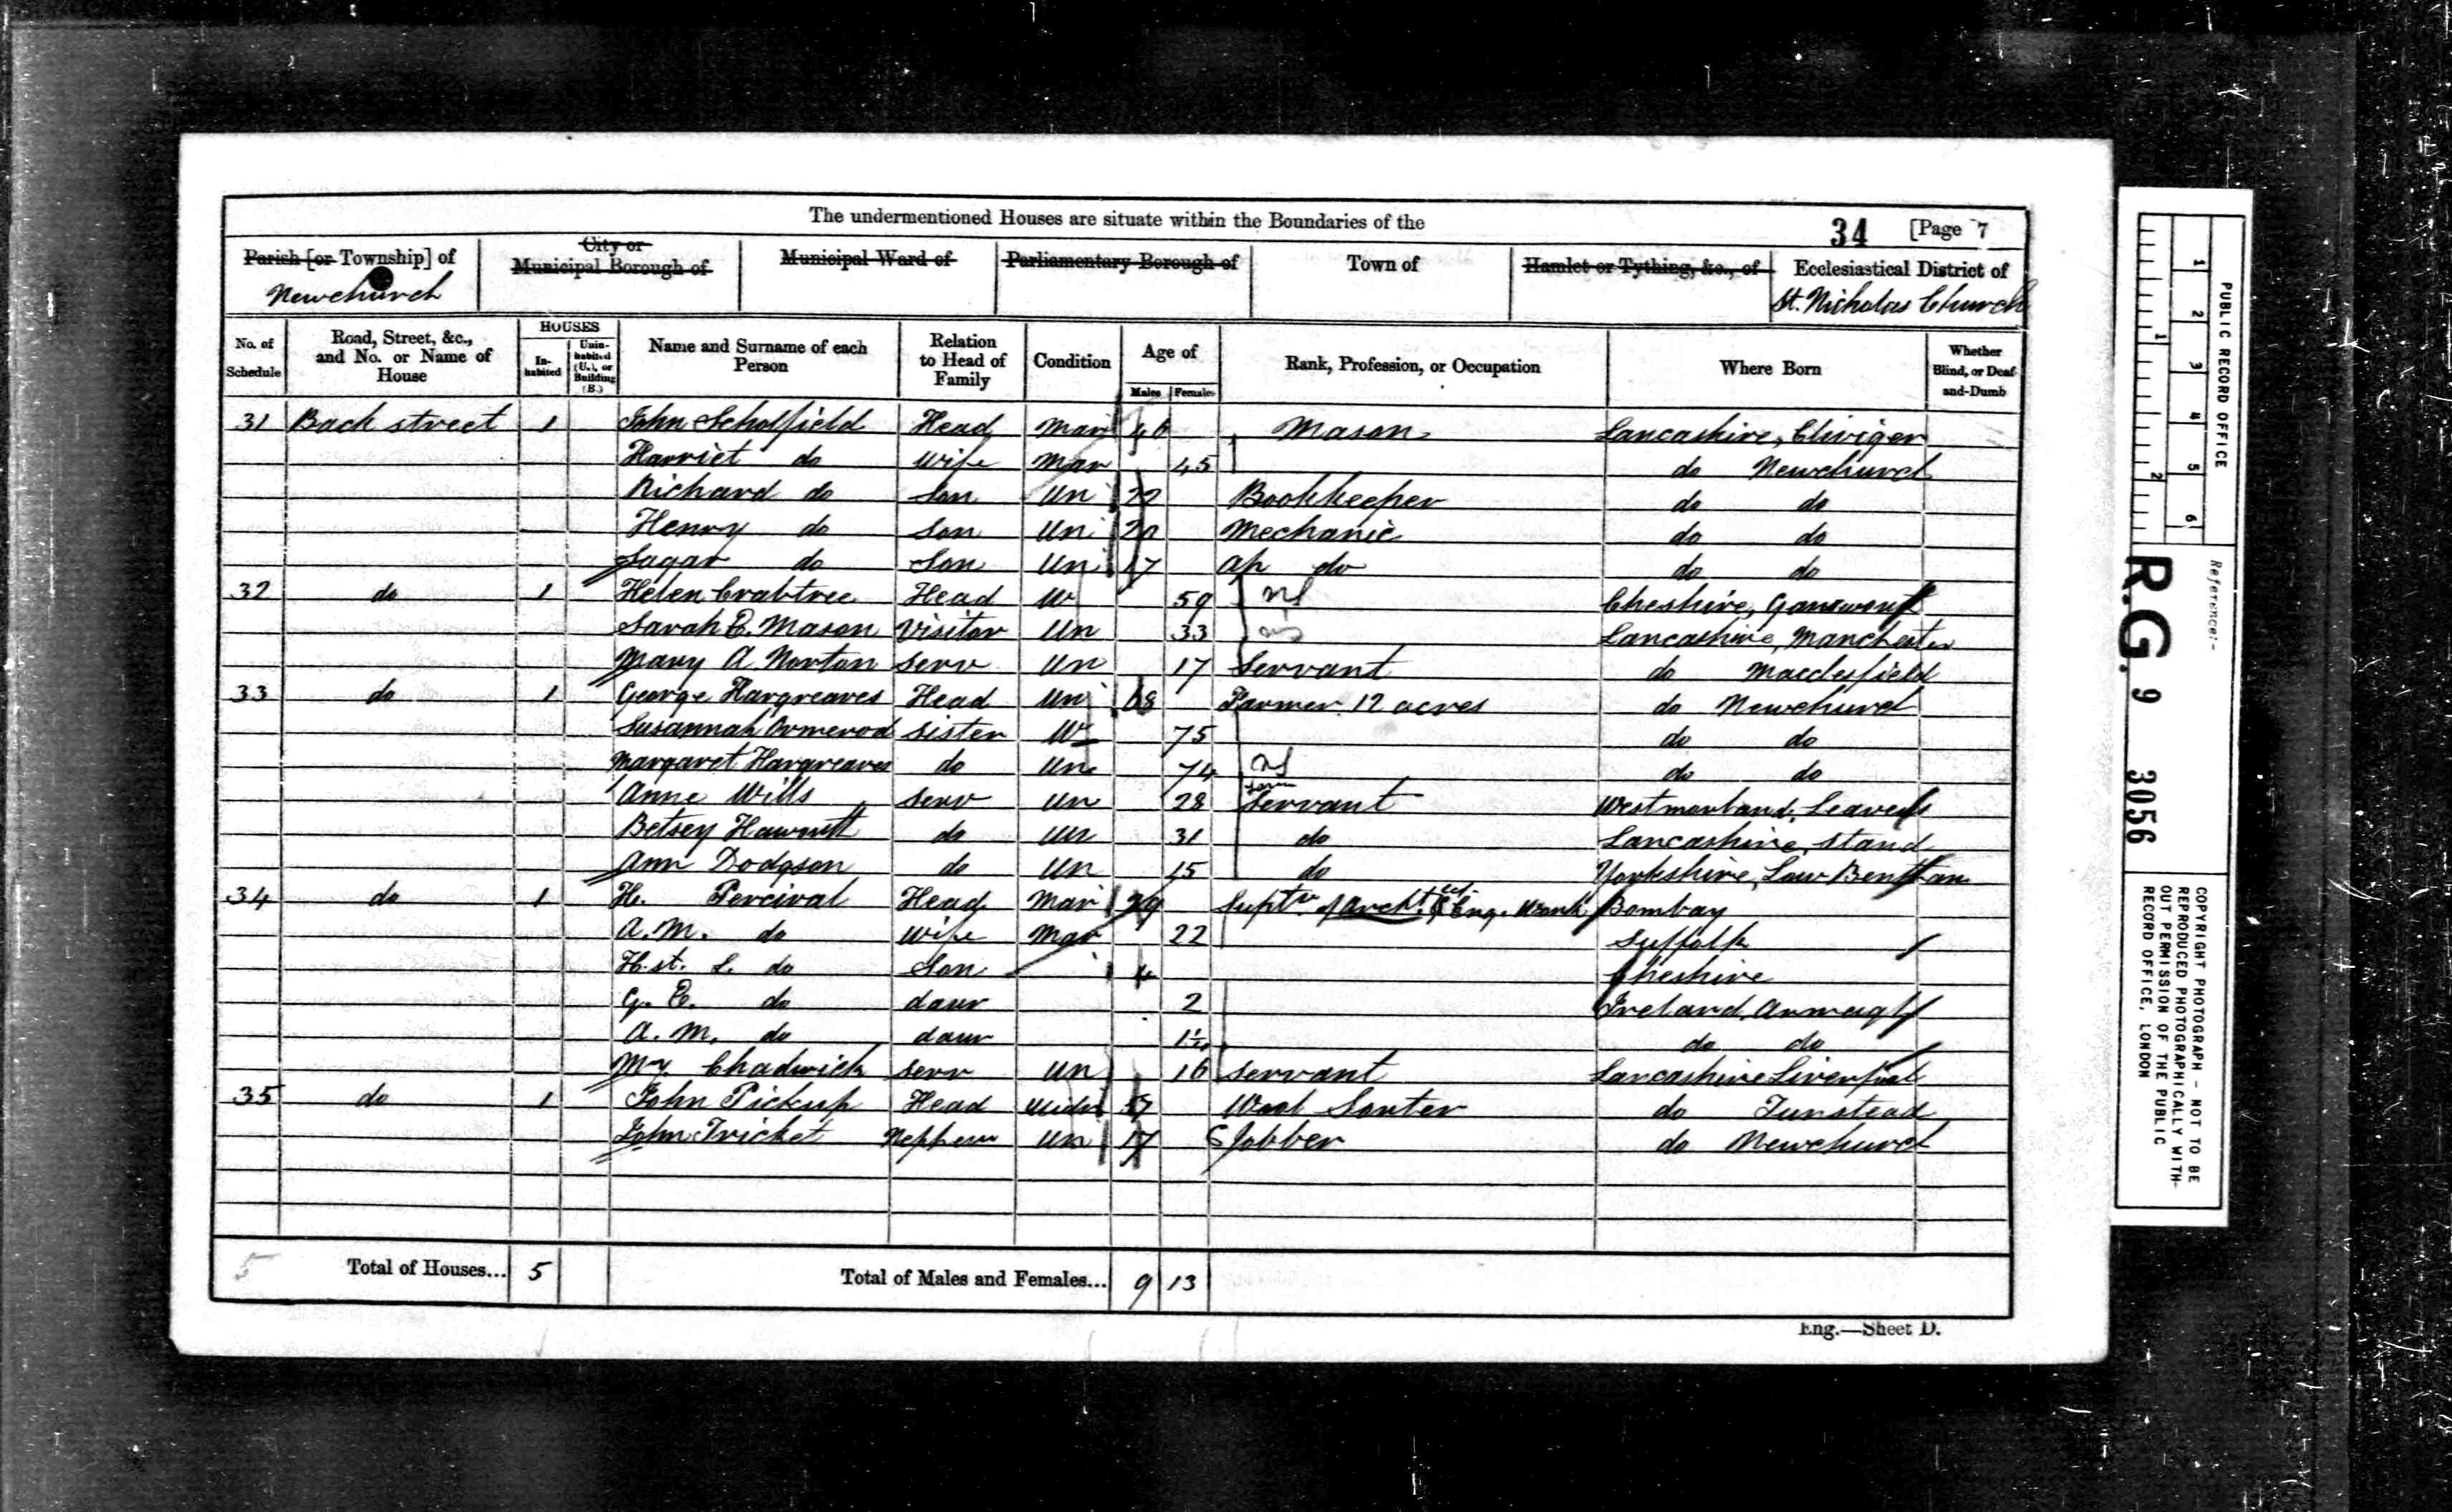 The undermentioned Houses are situate within the Boundaries of the 34 [Page 7
Parish [or Township] of City or Municipal Borough of Municipal Ward of Parliamentary Borough of Town of Hamlet or Tything, &c., of Ecclesiastical District of
Newchurch St. Nicholas Church
No. of Schedule Road, Street, &c., and No. or Name of House HOUSES Inhabited Uninhabited (U.), or Building (B.) Name and Surname of each Person Relation to Head of Family Condition Age of Males Females Rank, Profession, or Occupation Where Born Whether Blind, or Deaf-and-Dumb
31 Back street 1 John Scholfield Head Mar 46 Mason Lancashire, Cliviger
Harriet do Wife Mar 45 do Newchurch
Richard do Son Un 22 Bookkeeper do do
Henry do Son Un 20 Mechanic do do
Sagar do Son Un 17 Ap do do do
32 do 1 Helen Crabtree Head W 59 Cheshire,
Sarah E. Mason Visitor Un 33 Lancashire, Manchester
Mary A Norton Serv Un 17 Servant do Macclesfield
33 do 1 George Hargreaves Head Un 68 Farmer 12 acres do Newchurch
Susannah Ormerod Sister W 75 do do
Margaret Hargreaves do Un 74 do do
Anne Wills Serv Un 28 Servant Westmorland,
Betsey do Un 31 do Lancashire, Stand
Ann Dodgson do Un 15 do Yorkshire, Low Bentham
34 do 1 H. Percival Head Mar 29 Supt of Archt & Eng. Work Bombay
A. M. do Wife Mar 22 Suffolk
H. St. L. do Son 4 Cheshire
G. E. do daur 2 Ireland, Armagh
A. M. do daur do do
My Chadwick Serv Un 16 Servant Lancashire Liverpool
35 do 1 John Pickup Head Widr 57 Wool Sorter do Tunstead
John Tricket Nephew Un 17 Jobber do Newchurch
5 Total of Houses... 5 Total of Males and Females... 9 13
Eng.—Sheet D.
PUBLIC RECORD OFFICE
1 2 3 4 5 6
1 2
Reference:-
R.G. 9 3056
COPYRIGHT PHOTOGRAPH - NOT TO BE
REPRODUCED PHOTOGRAPHICALLY WITH-
OUT PERMISSION OF THE PUBLIC
RECORD OFFICE, LONDON